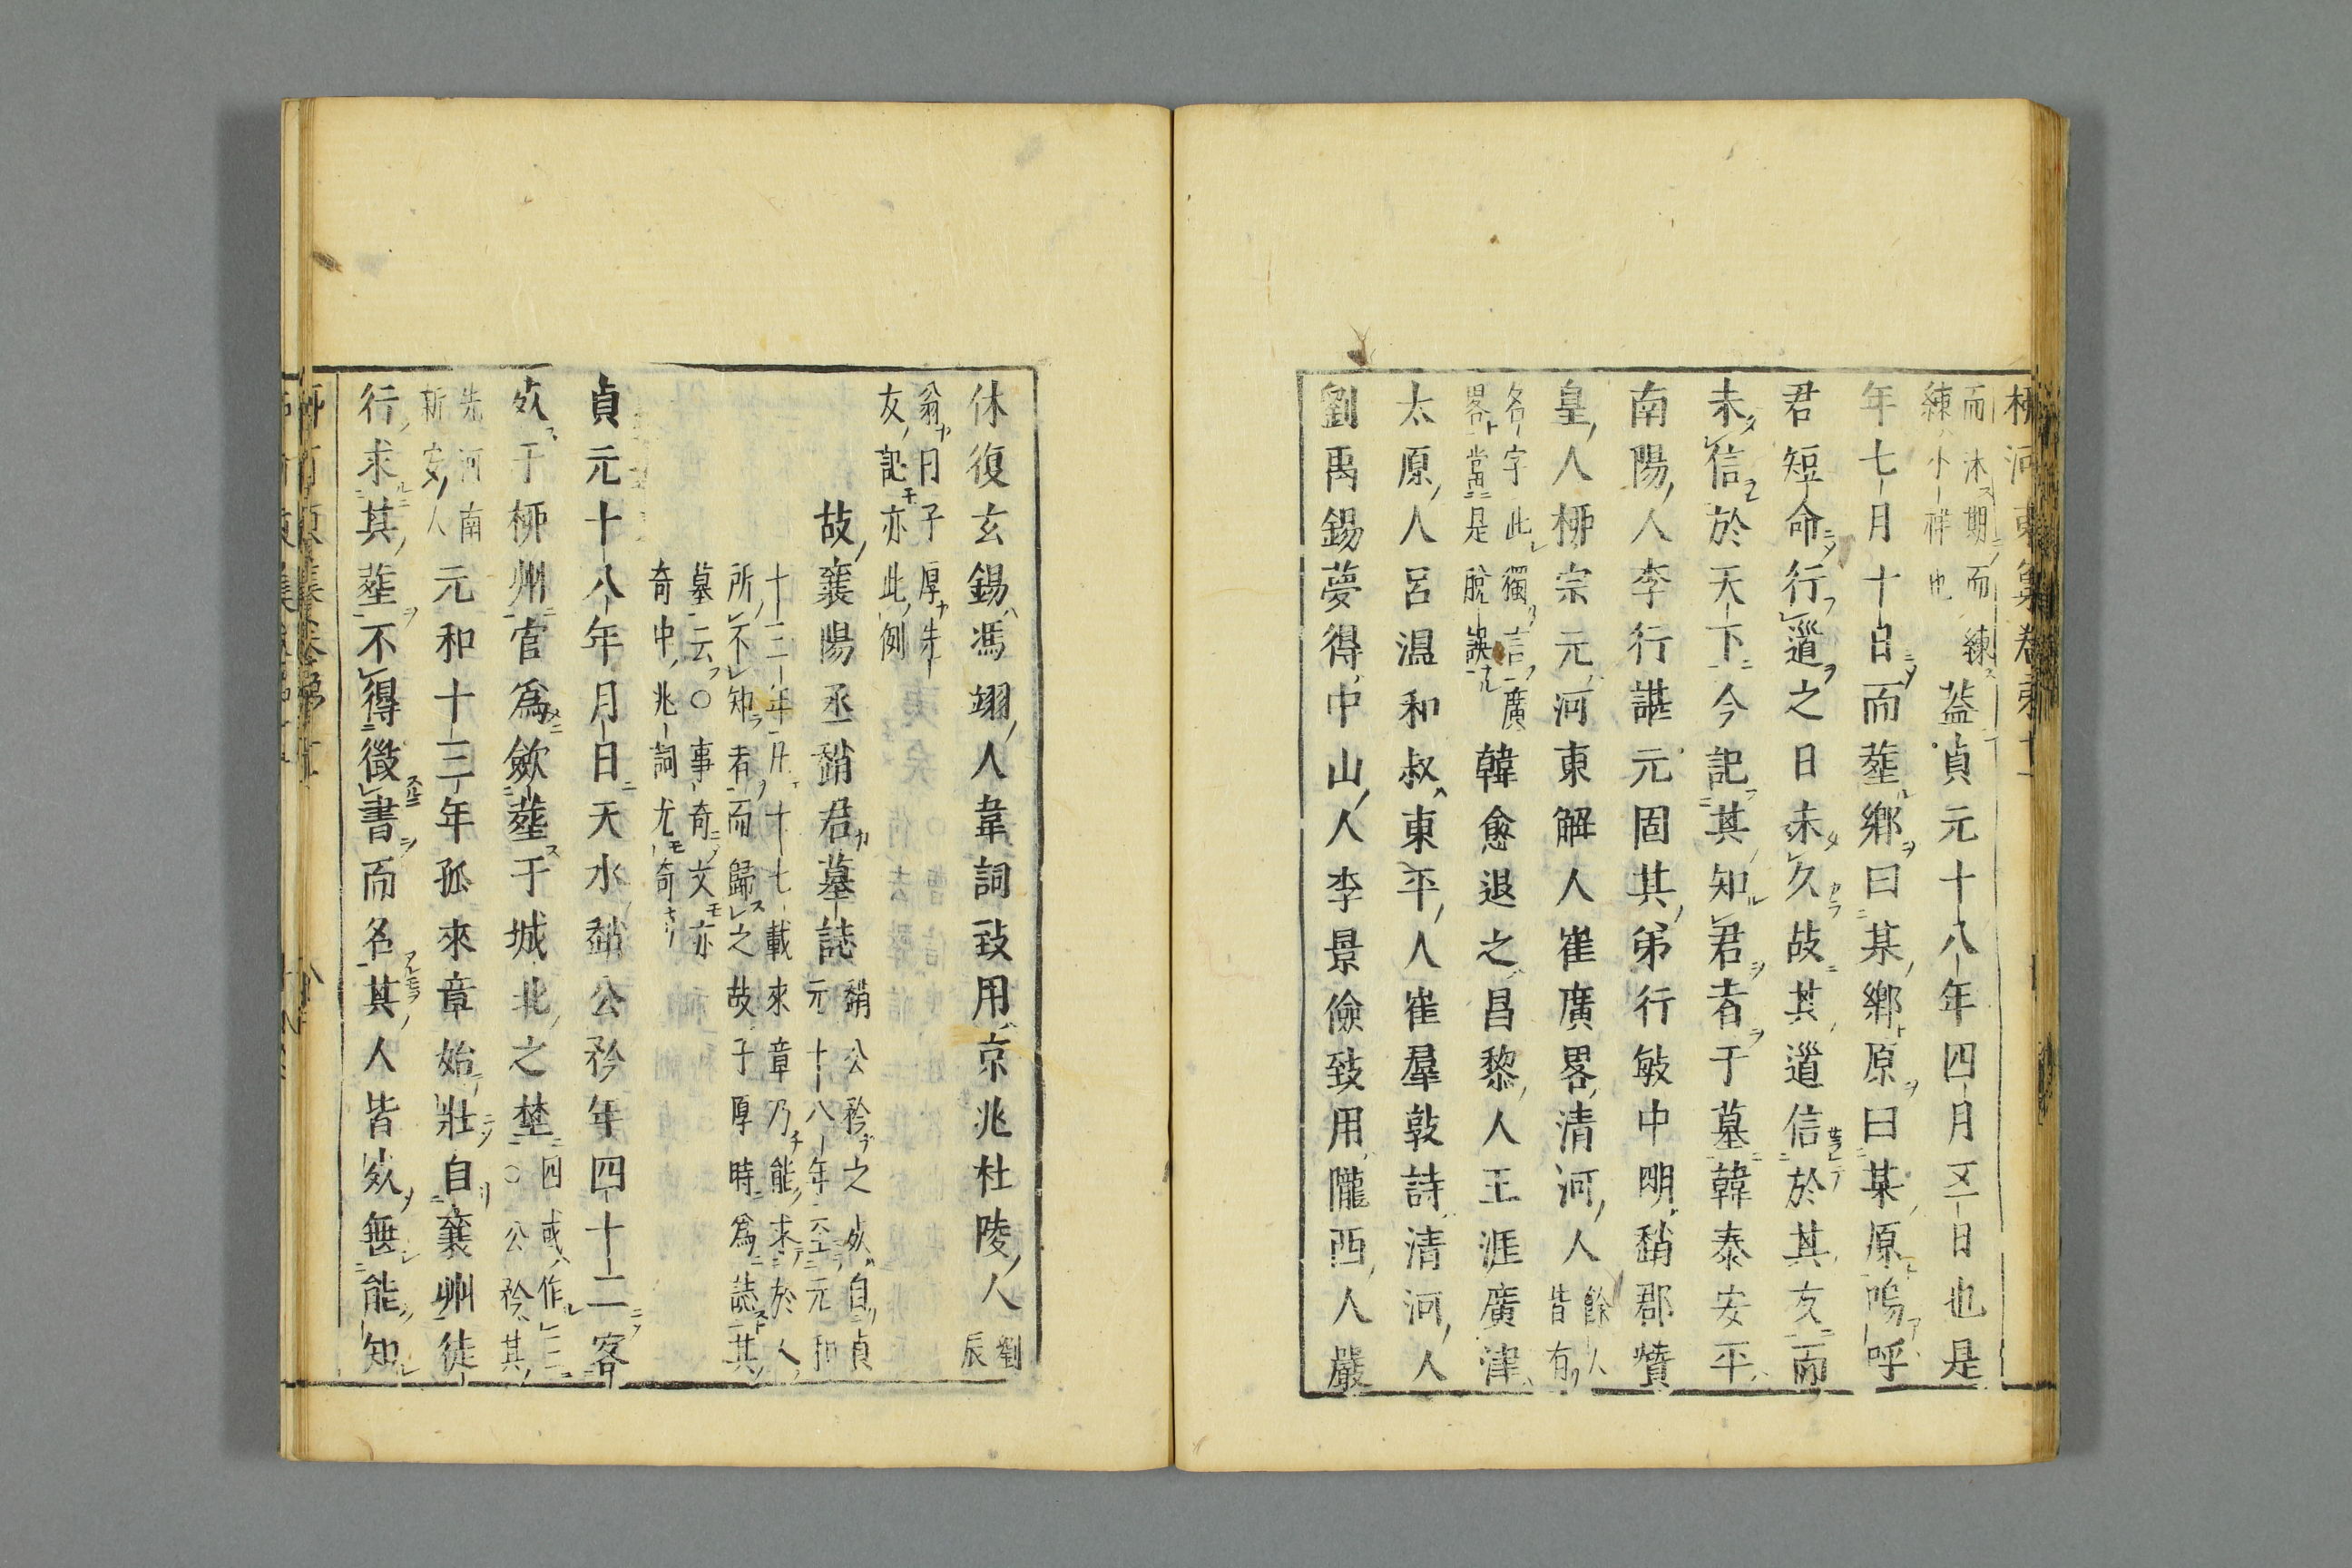 柳河東集卷第十一
而沐期而練
練小祥也
蓋貞元十八年四月五日也是
年七月十日而塟鄉曰某鄉原曰某原嗚呼
君短命行道之日未久故其道信於其友而
未信於天下今記其知君者于墓韓泰安平
南陽人李行諶元固其弟行敏中明趙郡贊
皇人柳宗元河東解人崔廣畧清河人
餘人皆有
名字此獨言廣
畧當是脫誤
韓愈退之昌黎人王涯廣津
太原人呂温和叔東平人崔羣敦詩清河人
劉禹錫夢得中山人李景儉致用隴西人嚴
休復玄錫馮翊人韋詞致用京兆杜陵人
劉辰
翁曰子厚先
友記亦此例
故襄陽丞趙君墓誌
趙公矜之死自貞
元十八年至元和
十三年凡十七載來章乃能求於人
所不知者而歸之故子厚時爲誌其
墓云○事奇文亦
奇中兆詞尤奇
貞元十八年月日天水趙公矜年四十二客
死于柳州官爲歛塟于城北之埜
四或作三
○公矜其
先河南
新安人
元和十三年孤來章始壯自襄州徒
行求其塟不得徵書而名其人皆死無能知